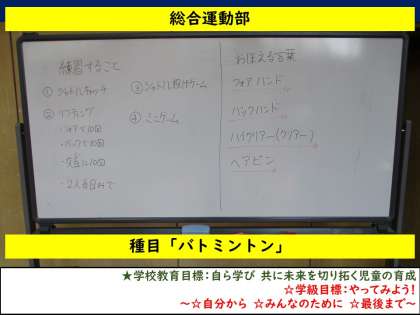 総合運動部
練習すること
① シャトルキャッチ
② リフティング
・フォアで10回
・バックで10回
・交互に10回
・2人各自みで
③ シャトル投げゲーム
④ ミニゲーム
おぼえる言葉
フォアハンド
バックハンド
ハイクリアー(クリアー)
ヘアピン
種目「バトミントン」
★学校教育目標:自ら学び 共に未来を切り拓く児童の育成
☆学級目標:やってみよう!
~☆自分から ☆みんなのために ☆最後まで~